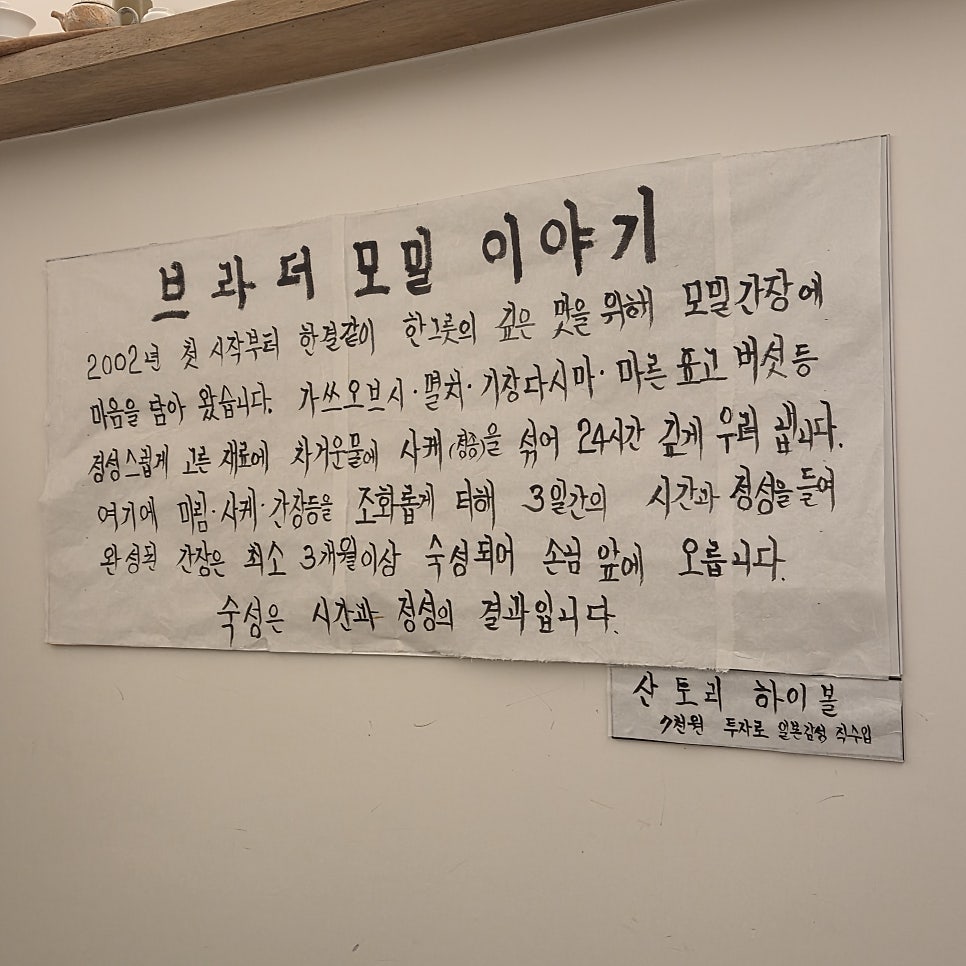 브라더 모밀 이야기
2002년 첫 시작부터 한결같이 한그릇의 깊은 맛을 위해 모밀간장에
마음을 담아 왔습니다. 가쓰오브시·멸치·기장다시마·마른 표고 버섯등
정성스럽게 고른 재료에 차거운물에 사케(정종)을 섞어 24시간 깊게 우려 냅니다.
여기에 미림·사케·간장등을 조화롭게 더해 3일간의 시간과 정성을 들여
완성된 간장은 최소 3개월이상 숙성되어 손님 앞에 오릅니다.
숙성은 시간과 정성의 결과입니다.
산토리 하이볼
7천원 투자로 일본감성 직수입